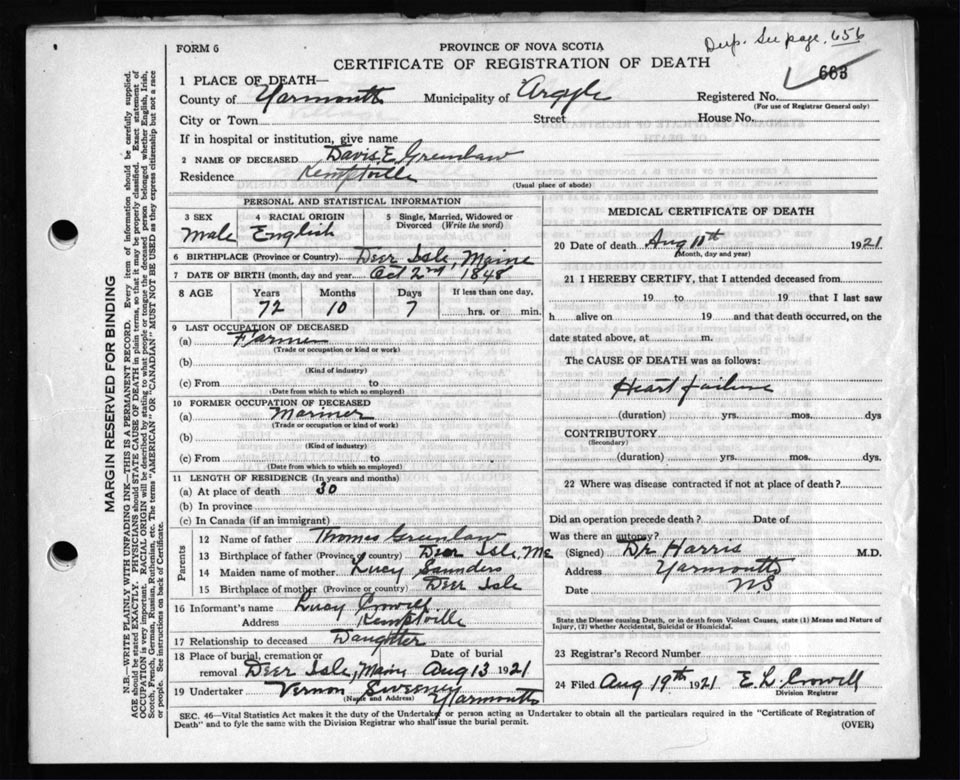 Dup. See page. 656
FORM 6
PROVINCE OF NOVA SCOTIA
CERTIFICATE OF REGISTRATION OF DEATH
663
1 PLACE OF DEATH—
County of Yarmouth Municipality of Argyle Registered No.
(For use of Registrar General only)
City or Town Street House No.
If in hospital or institution, give name
2 NAME OF DECEASED Davis E. Greenlaw
Residence Kemptville
(Usual place of abode)
PERSONAL AND STATISTICAL INFORMATION
3 SEX 4 RACIAL ORIGIN 5 Single, Married, Widowed or Divorced (Write the word)
Male English
6 BIRTHPLACE (Province or Country) Deer Isle, Maine
7 DATE OF BIRTH (month, day and year) Oct 2nd 1848
8 AGE Years Months Days If less than one day,
72 10 7 hrs. or min.
9 LAST OCCUPATION OF DECEASED
(a) Farmer
(Trade or occupation or kind or work)
(b)
(Kind of industry)
(c) From to
(Date from which to which so employed)
10 FORMER OCCUPATION OF DECEASED
(a) Mariner
(Trade or occupation or kind of work)
(b)
(Kind of industry)
(c) From to
(Date from which to which so employed)
11 LENGTH OF RESIDENCE (In years and months)
(a) At place of death 30
(b) In province
(c) In Canada (if an immigrant)
Parents
12 Name of father Thomas Greenlaw
13 Birthplace of father (Province or country) Deer Isle, Me
14 Maiden name of mother Lucy Saunders
15 Birthplace of mother (Province or country) Deer Isle
16 Informant's name Lucy Crowell
Address Kemptville
17 Relationship to deceased Daughter
18 Place of burial, cremation or removal Date of burial
Deer Isle, Maine Aug 13 1921
19 Undertaker Vernon Sweeney
(Name and Address) Yarmouth
MEDICAL CERTIFICATE OF DEATH
20 Date of death Aug 11th 1921
(Month, day and year)
21 I HEREBY CERTIFY, that I attended deceased from
19 to 19 that I last saw
h alive on 19 and that death occurred, on the
date stated above, at m.
The CAUSE OF DEATH was as follows:
Heart failure
(duration) yrs. mos. dys
CONTRIBUTORY
(Secondary)
(duration) yrs. mos. dys.
22 Where was disease contracted if not at place of death?
Did an operation precede death? Date of
Was there an autopsy?
(Signed) Dr Harris M.D.
Address Yarmouth
Date N.S
State the Disease causing Death, or in death from Violent Causes, state (1) Means and Nature of
Injury, (2) whether Accidental, Suicidal or Homicidal.
23 Registrar's Record Number
24 Filed Aug 19th 1921 E. L. Crowell
Division Registrar
SEC. 46—Vital Statistics Act makes it the duty of the Undertaker or person acting as Undertaker to obtain all the particulars required in the "Certificate of Registration of
Death" and to fyle the same with the Division Registrar who shall issue the burial permit. (OVER)
MARGIN RESERVED FOR BINDING
N.B.—WRITE PLAINLY WITH UNFADING INK—THIS IS A PERMANENT RECORD. Every item of information should be carefully supplied.
AGE should be stated EXACTLY. PHYSICIANS should STATE CAUSE OF DEATH in plain terms, so that it may be properly classified. Exact statement of
OCCUPATION is very important. RACIAL ORIGIN will be described by stating to what people or tongue the deceased person belonged whether English, Irish,
Scotch, French, German, Russian, Ruthenian, etc. The terms "AMERICAN" OR "CANADIAN" MUST NOT BE USED as they express citizenship but not a race
or people. See instructions on back of Certificate.